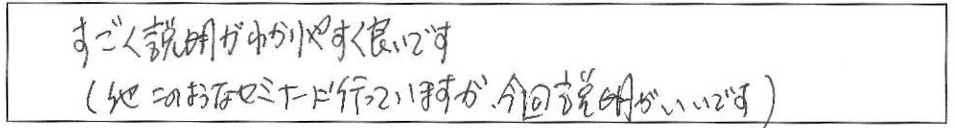 すごく説明がわかりやすく良いです
(他このようなセミナーに行っていますが、今回説明がいいです)